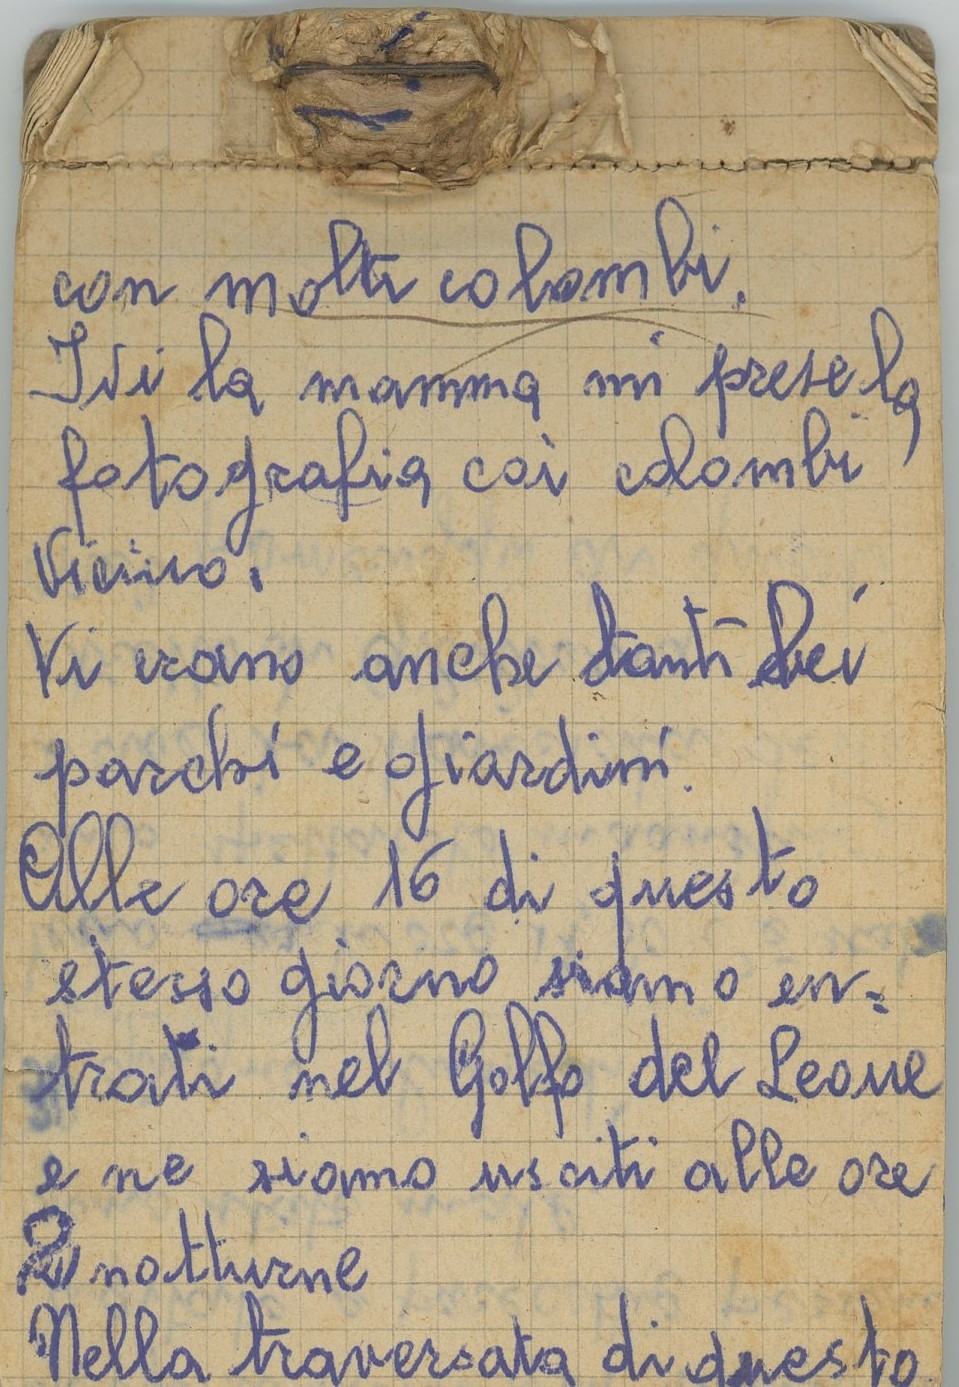 con molti colombi.
Ivi la mamma mi prese la
fotografia coi colombi
vicino.
Vi erano anche tanti bei
parchi e giardini.
Alle ore 16 di questo
stesso giorno siamo en=
trati nel Golfo del Leone
e ne siamo usciti alle ore
2 notturne
Nella traversata di questo